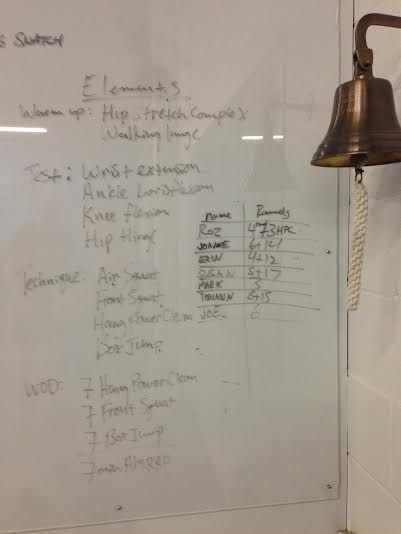 SNATCH
Elements
Warm up: Hip stretch Complex
Walking lunge
Test: Wrist extension
Ankle Dorsiflexion
Knee flexion
Hip Hinge
Name Rounds
ROZ 4 73HPC
JOANNE 6+14
ERIN 4+12
5+17
MARK 5
6+15
JOE 6
Technique: Air Squat
Front Squat
Hang Power Clean
Box Jump
WOD: 7 Hang Power Clean
7 Front Squat
7 Box Jump
7 min AMRAP